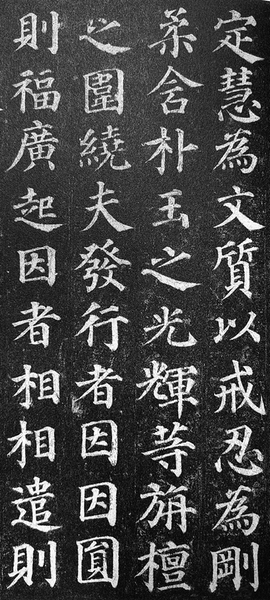 定慧為文質以戒忍為剛
柔含朴玉之光輝等旃檀
之圍繞夫發行者因因圓
則福廣起因者相相遣則